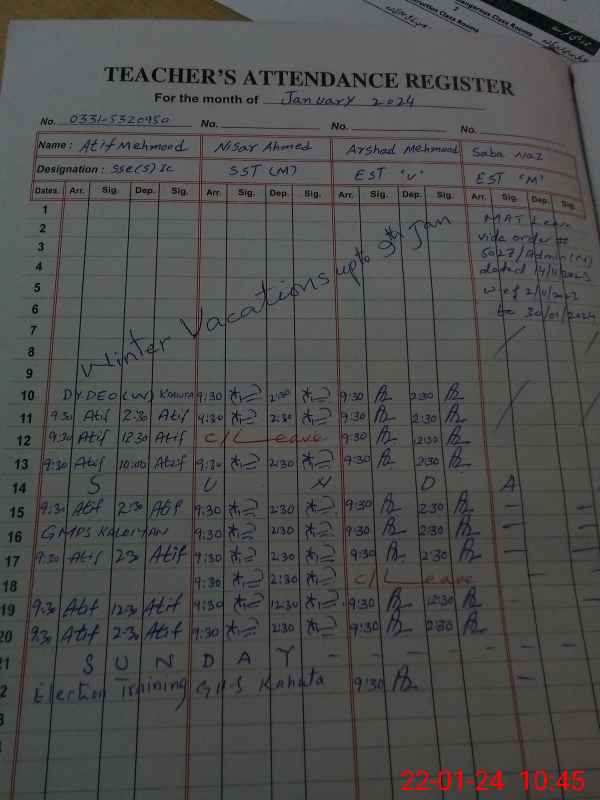 Dangerous Class Rooms
TEACHER'S ATTENDANCE REGISTER
For the month of January 2024
No. 0331-5320950 No. No. No.
Name: Atif Mehmood Nisar Ahmed Arshad Mehmood Saba Naz
Designation: SSE(S) Sc SST (M) EST 'U' EST 'M'
Dates. Arr. Sig. Dep. Sig. Arr. Sig. Dep. Sig. Arr. Sig. Dep. Sig. Arr. Sig. Dep. Sig.
1 MAT Leave
2 vide order #
3 5027/Admin
4 dated
5 w.ef 2/11/2023
6 to 30/01/2024
7 Winter Vacations up to 9th Jan
8
9
10 DY.DEO (W) Kahuta 9:30 2:30 9:30 2:30
11 9:30 Atif 2:30 Atif 9:30 2:30 9:30 2:30
12 9:30 Atif 12:30 Atif C/L Leave 9:30 12:30
13 9:30 Atif 10:00 Atif 9:30 2:30 9:30 2:30
14 S U N D A
15 9:30 Atif 2:30 Atif 9:30 2:30 9:30 2:30 -
16 GMPS KALOIYAN 9:30 2:30 9:30 2:30 -
17 9:30 Atif 2:30 Atif 9:30 2:30 9:30 2:30 -
18 9:30 2:30 C/L Leave -
19 9:30 Atif 12:30 Atif 9:30 12:30 9:30 12:30 -
20 9:30 Atif 2:30 Atif 9:30 2:30 9:30 2:30 -
21 S U N D A Y - - - - - -
2 Election Training GHS Kahuta 9:30 -
22-01-24 10:45